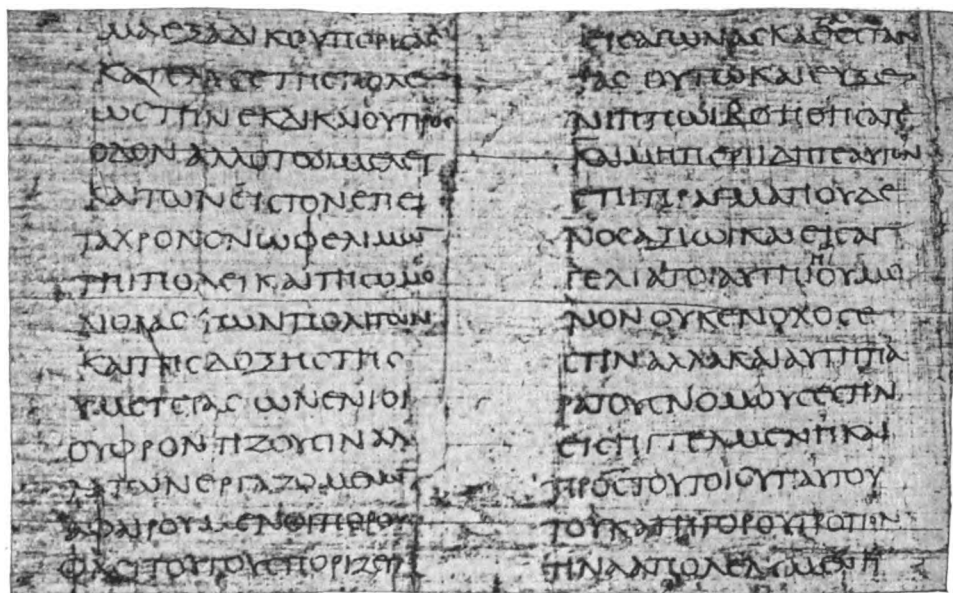 ΜΑΕΞΑΔΙΚΟΥΠΟΡΙΣΑΣ
ΚΑΤΕΛΥΣΕΤΗΣΠΟΛΕ
ΩΣΤΗΝΕΚΔΙΚΑΙΟΥΠΡΟΣ
ΟΔΟΝ
ΚΑΙΤΩΝΕΙΣΤΟΝΕΠΕΙ
ΤΑΧΡΟΝΟΝΩΦΕΛΙΜΩΝ
ΤΗΙΠΟΛΕΙΚΑΙΤΗΣΟΜΟ
ΝΟΙΑΣΤΩΝΠΟΛΙΤΩΝ
ΚΑΙΤΗΣΔΟΞΗΣΤΗΣ
ΥΜΕΤΕΡΑΣΩΝΕΝΙΟΙ
ΟΥΦΡΟΝΤΙΖΟΥΣΙΝΑΛ
ΛΑΤΩΝΕΡΓΑΖΟΜΕΝΩΝ
ΑΦΑΙΡΟΥΜΕΝΟΙΠΟΡΟΥΣ
ΦΑΣΙΤΟΥΤΟΥΣΠΟΡΙΖΕΙΝ
ΕΙΣΑΓΩΝΑΣΚΑΘΕΣΤΑΝ
ΤΑΣΟΥΤΩΚΑΙΕΥΞΕ
ΝΙΠΠΩΙΒΟΗΘΗΣΑΤΕ
ΚΑΙΜΗΠΕΡΙΙΔΗΤΕΑΥΤΟΝ
ΕΠΙΠΡΑΓΜΑΤΙΟΥΔΕ
ΝΟΣΑΞΙΩΙΚΑΙΕΙΣΑΓ
ΓΕΛΙΑΤΟΙΑΥΤΗΙΗΙΟΥΜΟ
ΝΟΝΟΥΚΕΝΟΧΟΣΕ
ΣΤΙΝΑΛΛΑΚΑΙΑΥΤΗΠΑ
ΡΑΤΟΥΣΝΟΜΟΥΣΕΣΤΙΝ
ΕΙΣΗΓΓΕΛΜΕΝΗΚΑΙ
ΠΡΟΣΤΟΥΤΟΙΣΥΠΑΥΤΟΥ
ΤΟΥΚΑΤΗΓΟΡΟΥΤΡΟΠΟΝ
ΤΙΝΑΑΠΟΛΕΛΥΜΕΝΗ